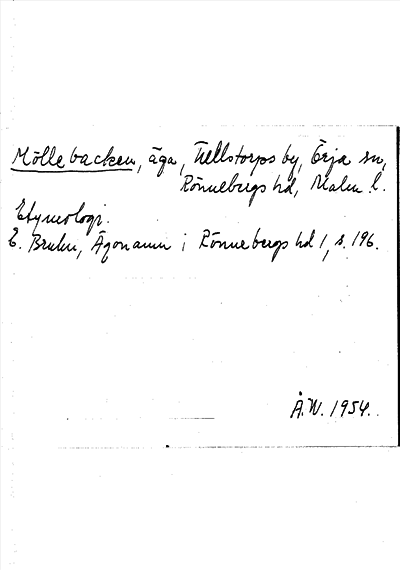 Möllebacken, äga, Tellstorps by, Örja sn,
Rönnebergs hd, Malm. l.
Etymologi.
E. Bruhn, Ägonamn i Rönnebergs hd 1, s. 196.
Å.W. 1954.